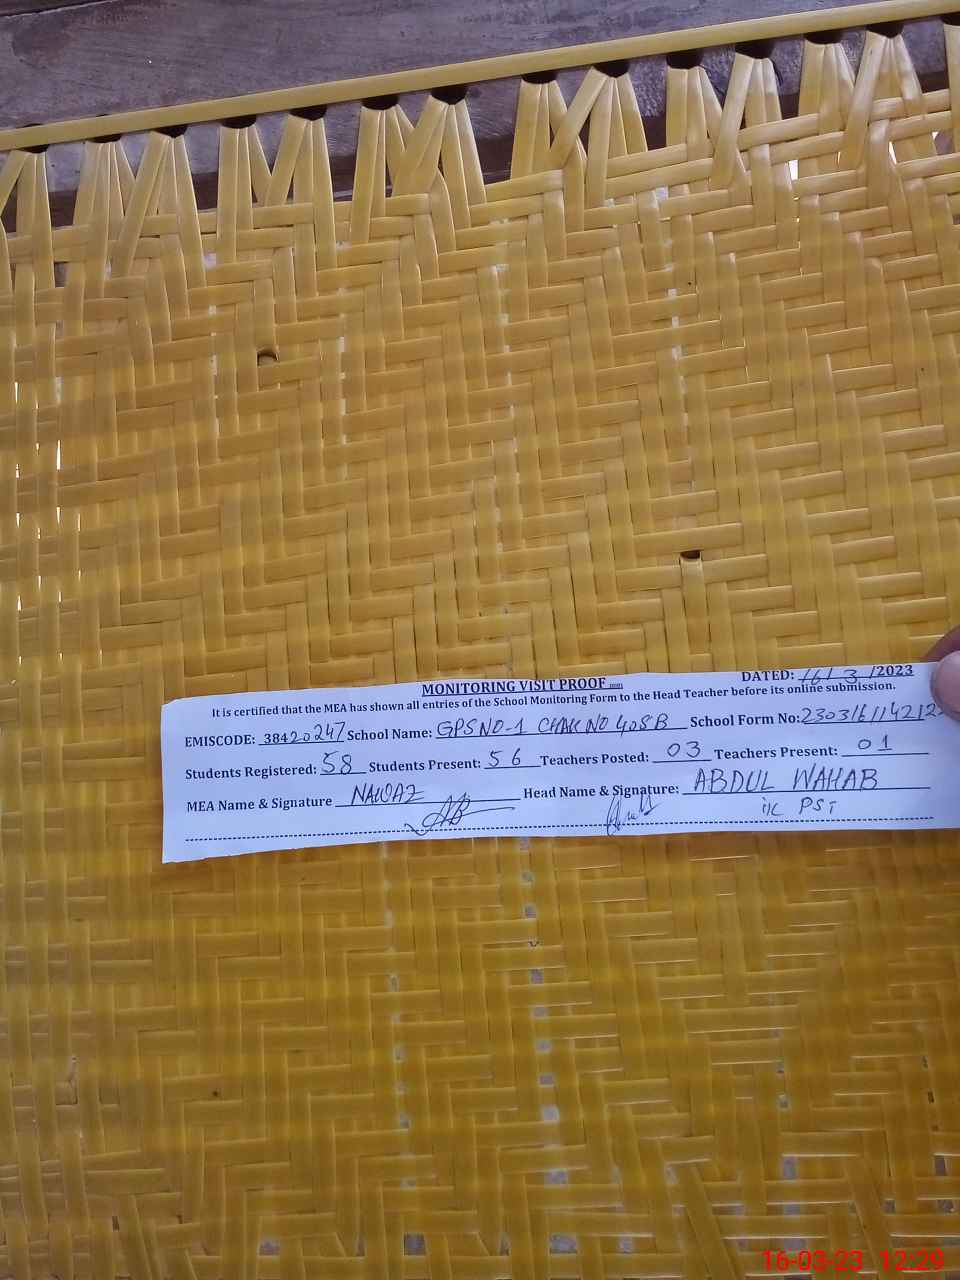 MONITORING VISIT PROOF
DATED: 16/3/2023
It is certified that the MEA has shown all entries of the School Monitoring Form to the Head Teacher before its online submission.
EMISCODE: 38420247 School Name: GPS NO-1 CHAK NO 408B School Form No:
Students Registered: 58 Students Present: 56 Teachers Posted: 03 Teachers Present: 01
MEA Name & Signature NAWAZ Head Name & Signature: ABDUL WAHAB
i/c PST
16-03-23 12:29